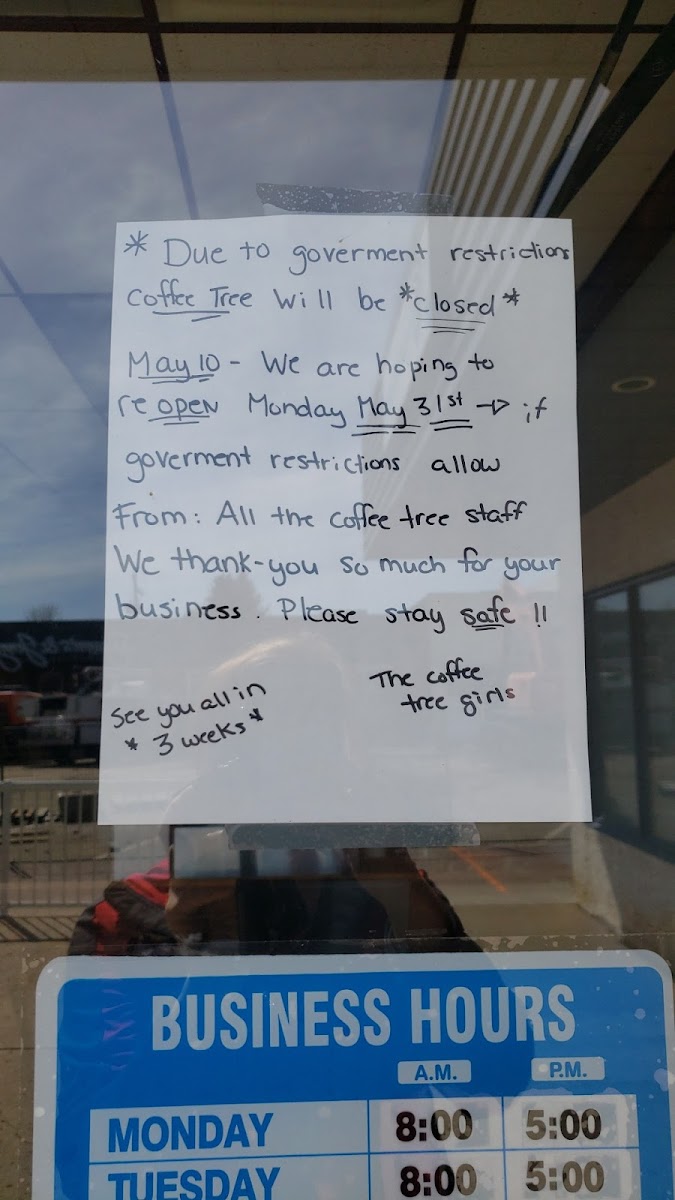 * Due to goverment restrictions
Coffee Tree will be *closed*
May 10 - We are hoping to
reopen Monday May 31st → if
goverment restrictions allow
From: All the coffee tree staff
We thank-you so much for your
business. Please stay safe !!
See you all in
* 3 weeks *
The coffee
tree girls
BUSINESS HOURS
A.M. P.M.
MONDAY 8:00 5:00
TUESDAY 8:00 5:00